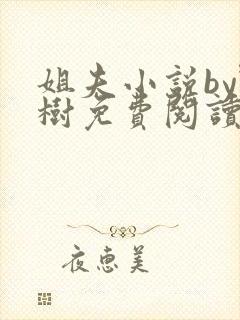 姐夫小说by
樹免費閱讀
夜恵美